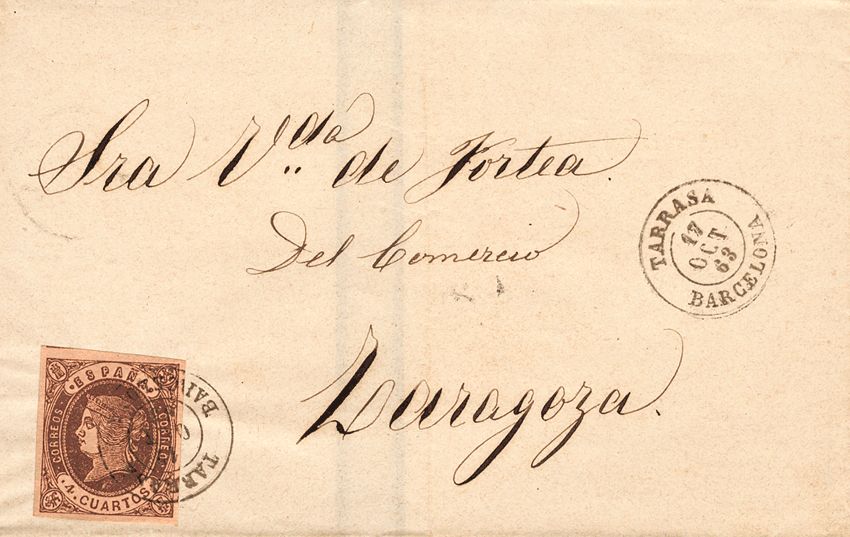 Sra V.da de Fortea.
Del Comercio
Zaragoza.
TARRASA
17
OCT
63
BARCELONA
ESPAÑA
CORREOS
CORREOS
4 CUARTOS